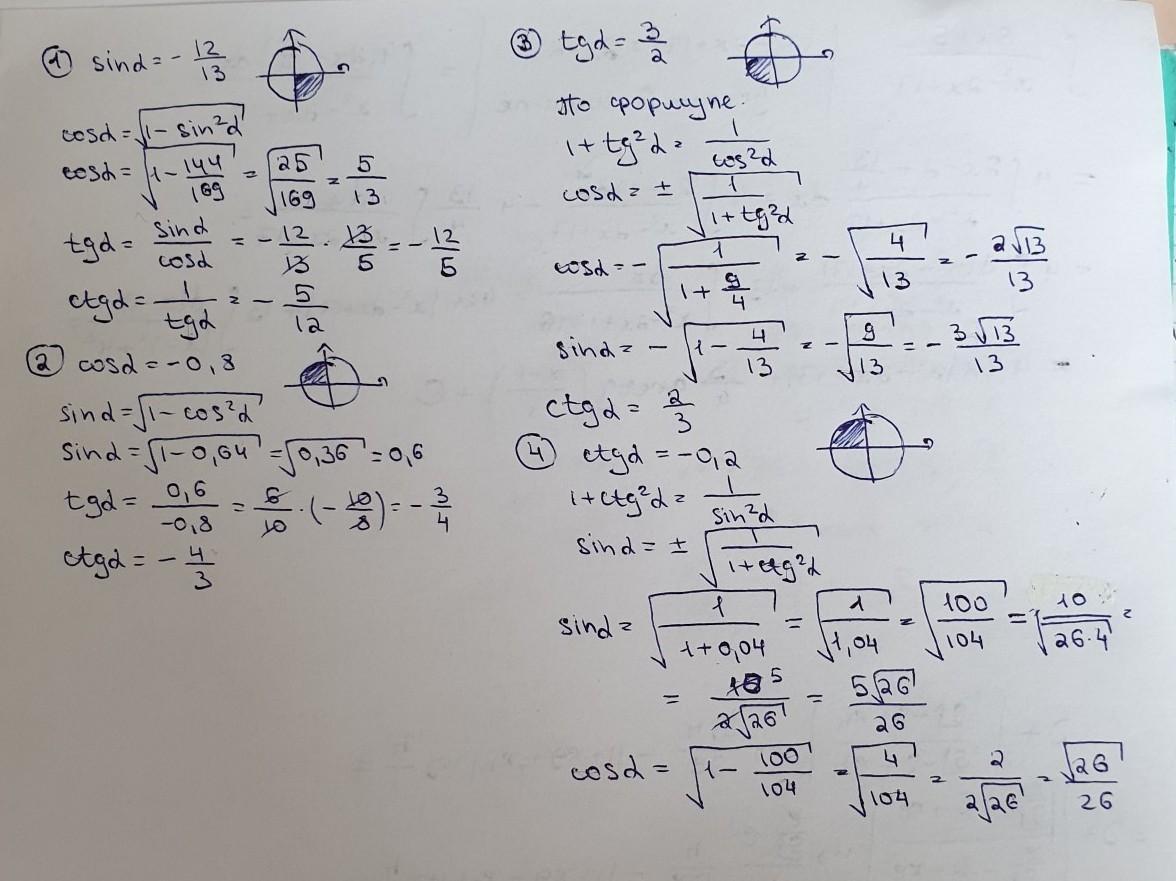 ① sinα = - 12/13
cosα = √(1 - sin²α)
cosα = √(1 - 144/169) = √(25/169) = 5/13
tgα = sinα/cosα = - 12/13 · 13/5 = - 12/5
ctgα = 1/tgα = - 5/12
② cosα = -0,8
sinα = √(1 - cos²α)
sinα = √(1 - 0,64) = √0,36 = 0,6
tgα = 0,6/-0,8 = 6/10 · (- 10/8) = - 3/4
ctgα = - 4/3
③ tgα = 3/2
По формуле:
1 + tg²α = 1/cos²α
cosα = ± √(1/(1 + tg²α))
cosα = - √(1/(1 + 9/4)) = - √(4/13) = - 2√13/13
sinα = - √(1 - 4/13) = - √(9/13) = - 3√13/13
ctgα = 2/3
④ ctgα = -0,2
1 + ctg²α = 1/sin²α
sinα = ± √(1/(1 + ctg²α))
sinα = √(1/(1 + 0,04)) = √(1/1,04) = √(100/104) = 10/√(26·4) =
= 10 5/2√26 = 5√26/26
cosα = √(1 - 100/104) = √(4/104) = 2/2√26 = √26/26